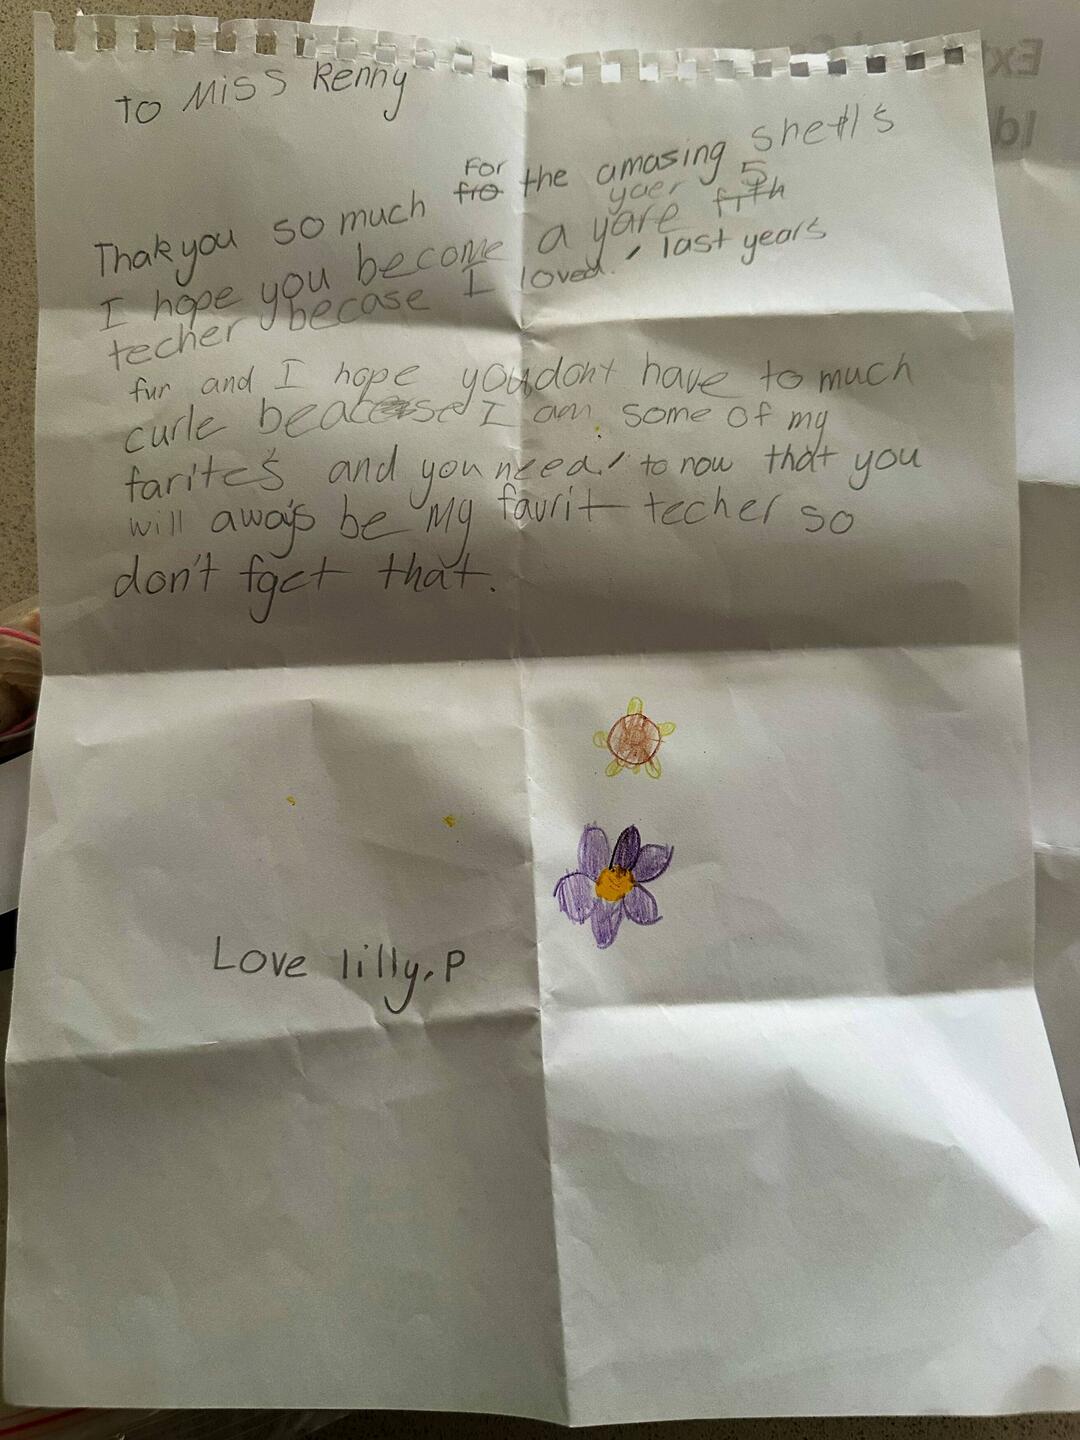 To Miss Renny
Thak you so much for the amasing shells
I hope you become a yaer 5
techer becase I loved last years
fur and I hope you dont have to much
curle beacase I am some of my
farites and you need to now that you
will aways be my favrit techer so
don't fget that.
Love lilly.P
Ext
Id